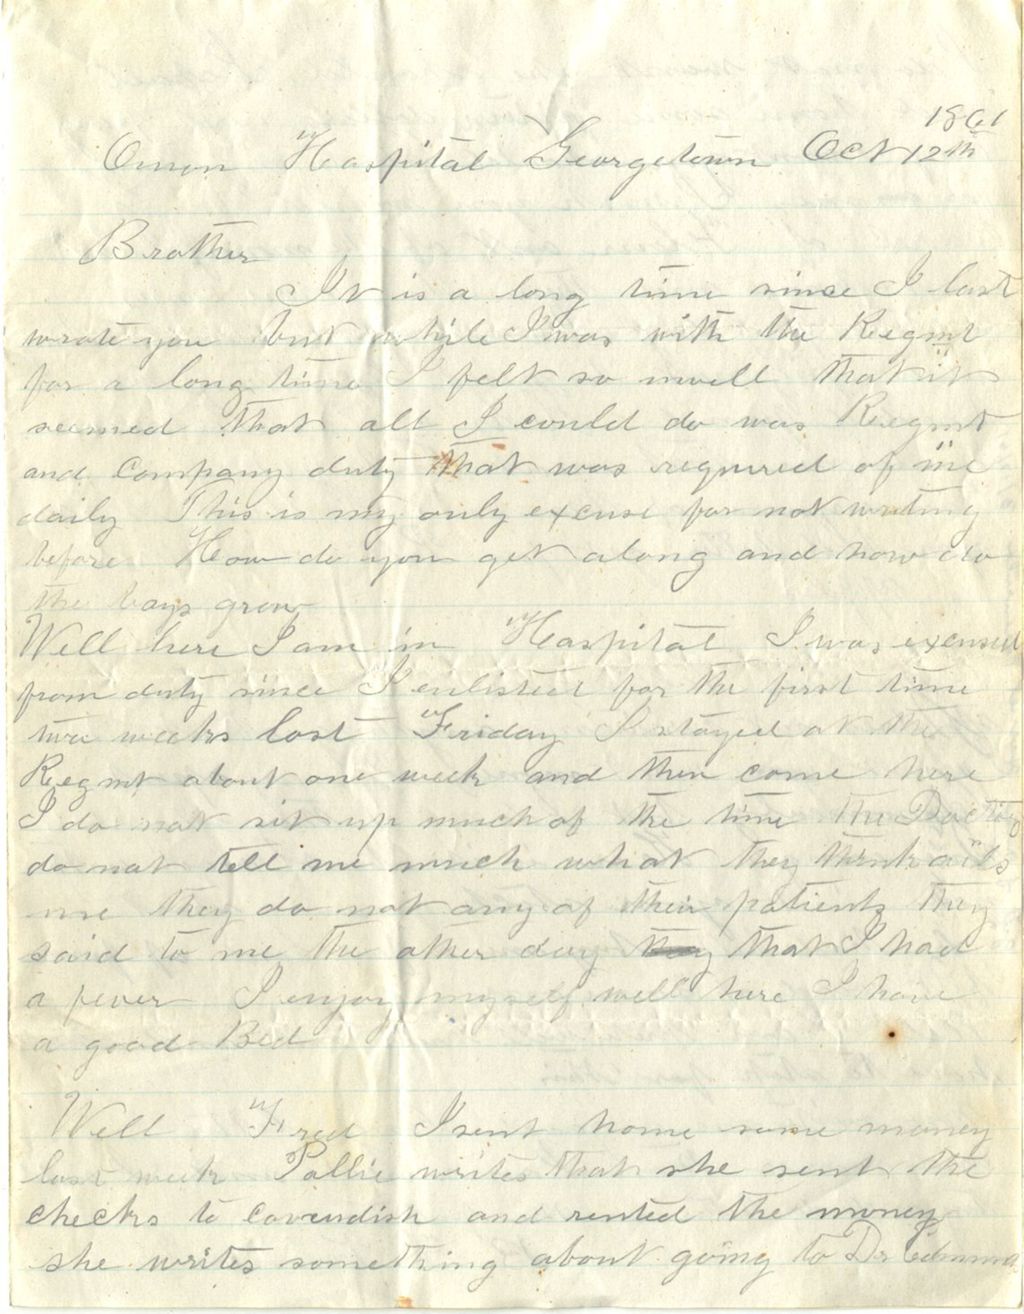 1861
Union Hospital Georgetown Oct 12th
Brother
It is a long time since I last
wrote you but while I was with the Regmt
for a long time I felt so unwell that it
seemed that all I could do was Regmt
and Company duty that was required of me
daily This is my only excuse for not writing
before How do you get along and how do
the boys grow
Well here I am in Hospital I was excused
from duty since I enlisted for the first time
two weeks last Friday I stayed at the
Regmt about one week and then come here
I do not sit up much of the time the Doctors
do not tell me much what they think ails
me they do not any of their patients they
said to me the other day that I had
a fever I enjoy myself well here I have
a good Bed
Well Fred I sent home some money
last week Pollie writes that she sent the
checks to Cavendish and rented the money
she writes something about going to Dr